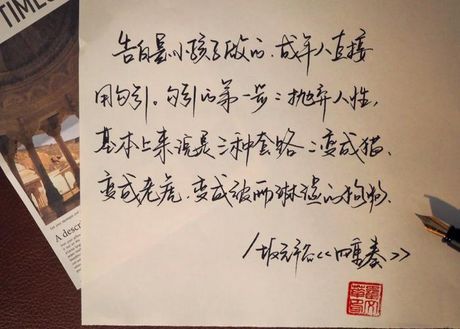 TIMES
告白是小孩子做的.成年人直接
用勾引。勾引的第一步:抛弃人性,
基本上来说是三种套路:变成猫、
变成老虎、变成被雨淋湿的狗狗.
/坂元裕《四重奏》
A descri